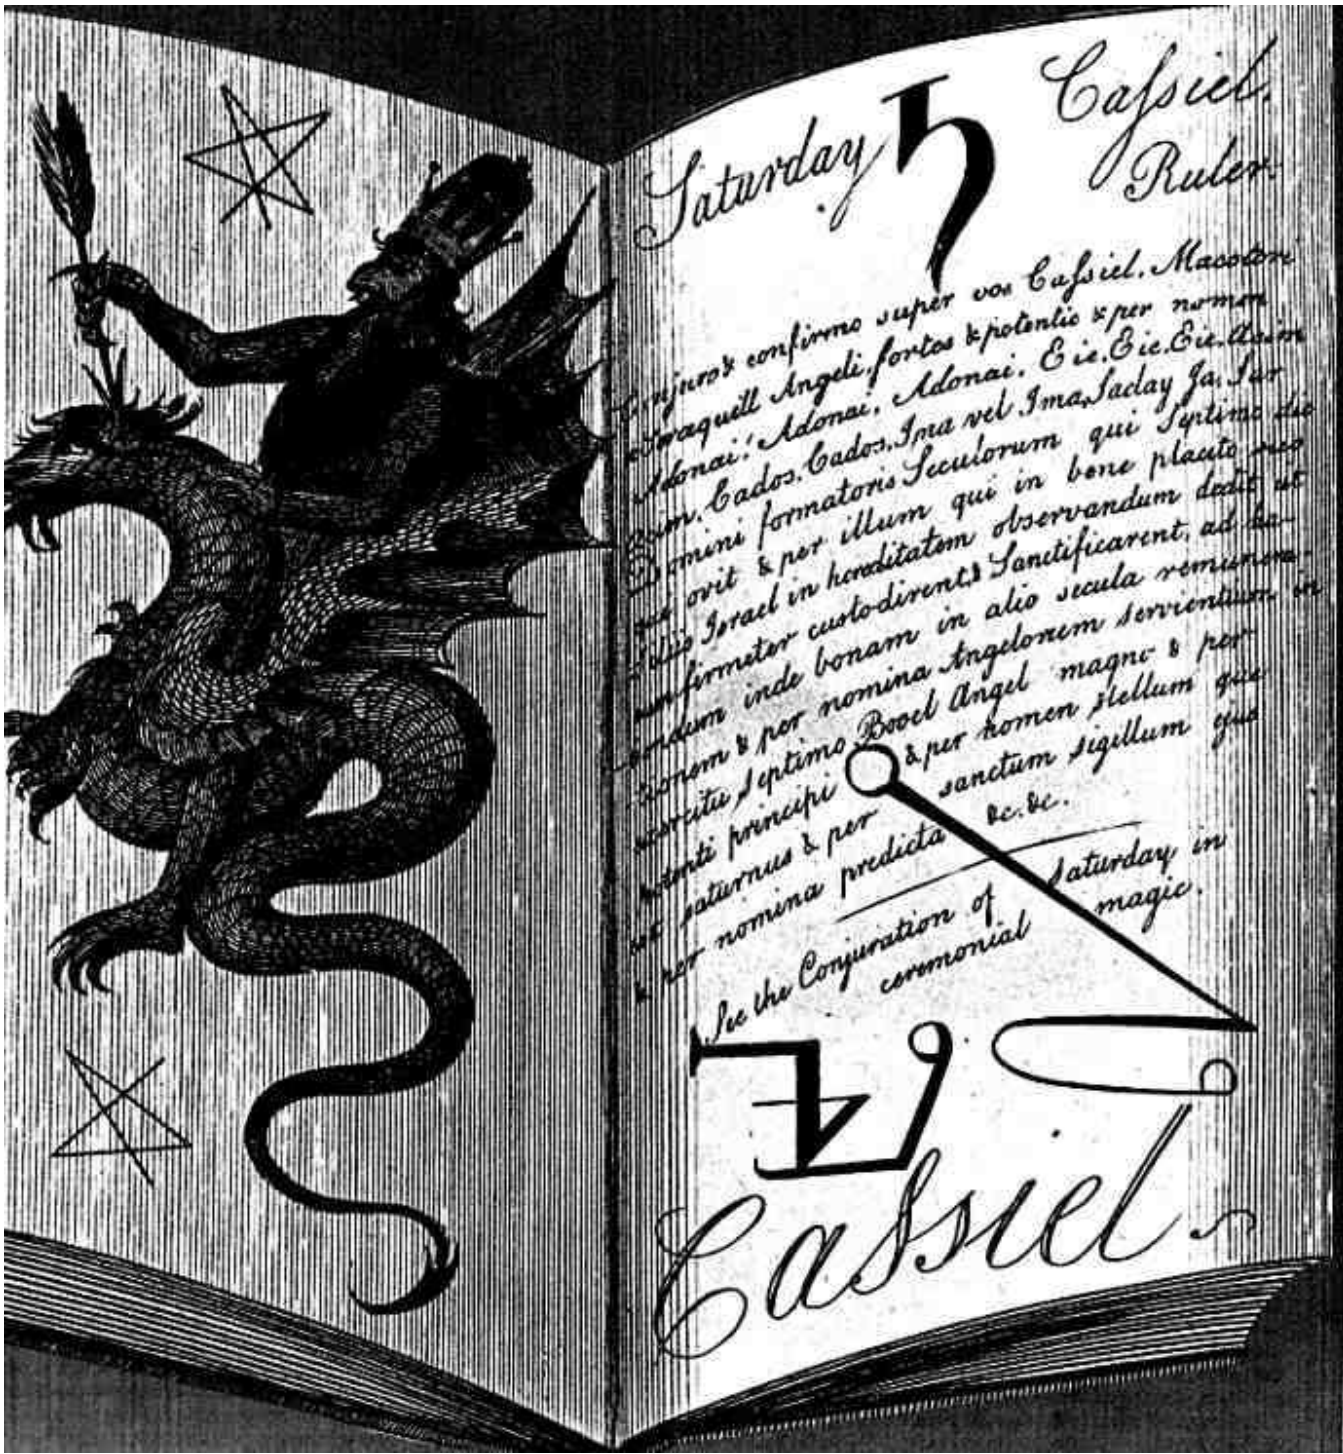 Saturday ♄ Cassiel.
Ruler.
Conjuro & confirmo super vos Cassiel.
Angeli, fortes & potentis & per nomen
Adonai! Adonai. Adonai. Eie. Eie. Eie. Acim
Cados. Cados. Ima vel Ima, Saday Ja, Sar
Domini formatoris Seculorum qui Septimo die
& per illum qui in bene placito suo
Israel in hereditatem observandum dedit ut
firmiter custodirent & Sanctificarent, ad ha-
inde bonam in alio secula remunera-
& per nomina Angelorem servientium in
septimo Booel Angel magno & per
potenti principi & per homen stellum que
est saturnus & per sanctum sigillum que
& per nomina predicta &c. &c.
See the Conjuration of Saturday in
ceremonial magic.
Cassiel.